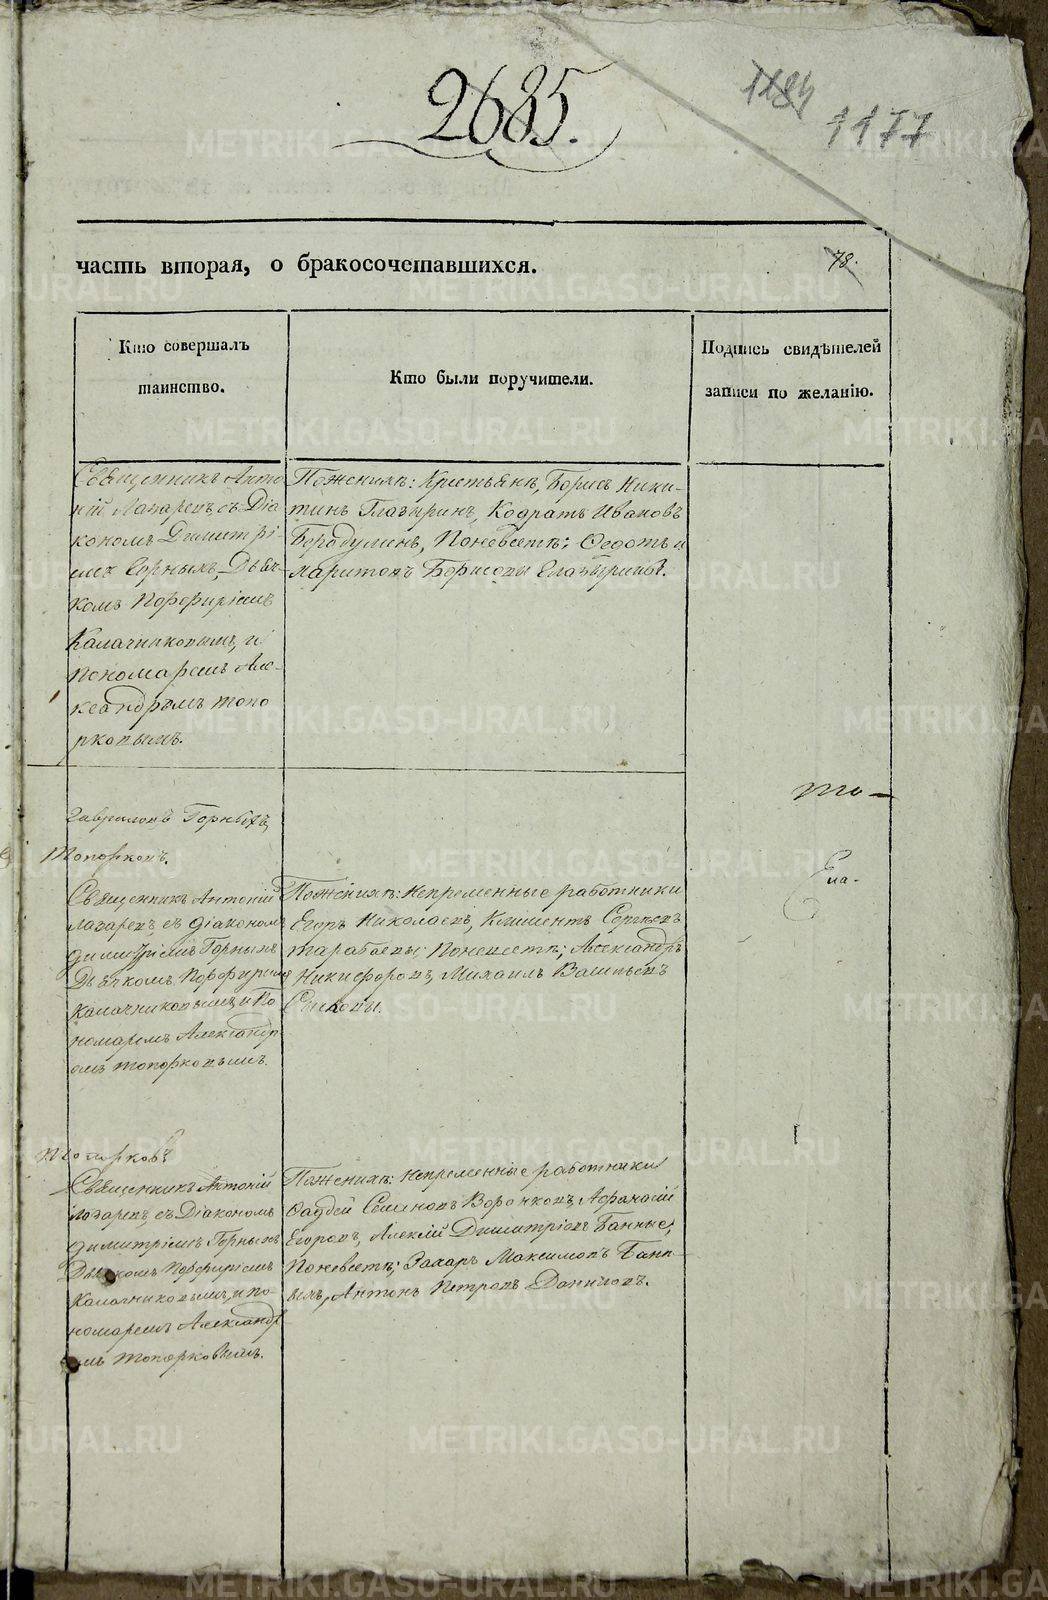 2685.
1184
1177
часть вторая, о бракосочетавшихся.
78.
Кто совершалъ
таинство.
Кто были поручители.
Подпись свидѣтелей
записи по желанію.
Священникъ Анто
ній Лазаревъ, съ Діа
кономъ Димитрі
емъ Горныхъ, Дьяч-
комъ Порфиріемъ
Калачниковымъ, и
пономаремъ Але-
ксандромъ Топо
рковымъ.
Поженихѣ: Крестьянѣ, Борисъ Ники-
тинъ Глазыринъ, Кодратъ Ивановъ
Бородулинъ, Поневѣстѣ: Ѳедотъ и
Харитонъ Борисовы Глазырины.
То-
Гавриловъ Горныхъ,
Топорковъ.
Священникъ Антоній
Лазаревъ, съ діакономъ
Димитріемъ Горныхъ
Дьячкомъ Порфиріемъ
Калачниковымъ, и По
номаремъ Александр
омъ Топорковымъ.
Поженихѣ: Непременные работники
Егоръ Николаевъ, Климентъ Сергеевъ
Тарабаевы; Поневестѣ; Александръ
Никифоровъ, Михаилъ Васильевъ
Топорковъ
Священникъ Антоній
Лазаревъ, съ Діакономъ
Димитріемъ Горныхъ
Дьячкомъ Порфиріемъ
Калачниковымъ, и по-
номаремъ Александр
омъ Топорковымъ.
Поженихѣ: Непременные работники
Фадѣй Семеновъ Воронковъ, Афанасій
Егоровъ, Алексій Димитріевъ Банные,
Поневестѣ; Захаръ Максимовъ Банн-
ыхъ, Антонъ Петровъ Даниловъ.
METRIKI.GASO-URAL.RU